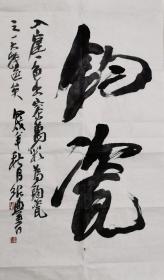 钧瓷
入窑一色出窑万彩为钧瓷
三大特点矣 戊戌年秋月